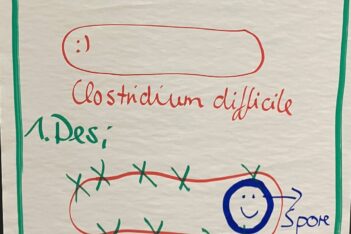 :)
Clostridium difficile
1. Desi
Spore